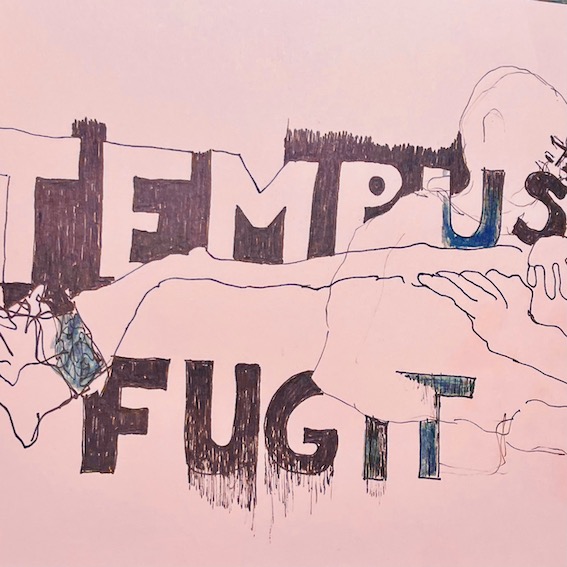 TEMPUS
FUGIT